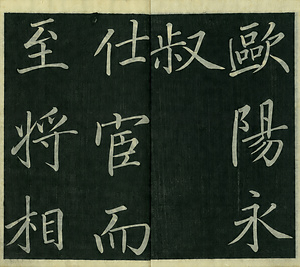 歐陽永
叔
仕宦而
至將相